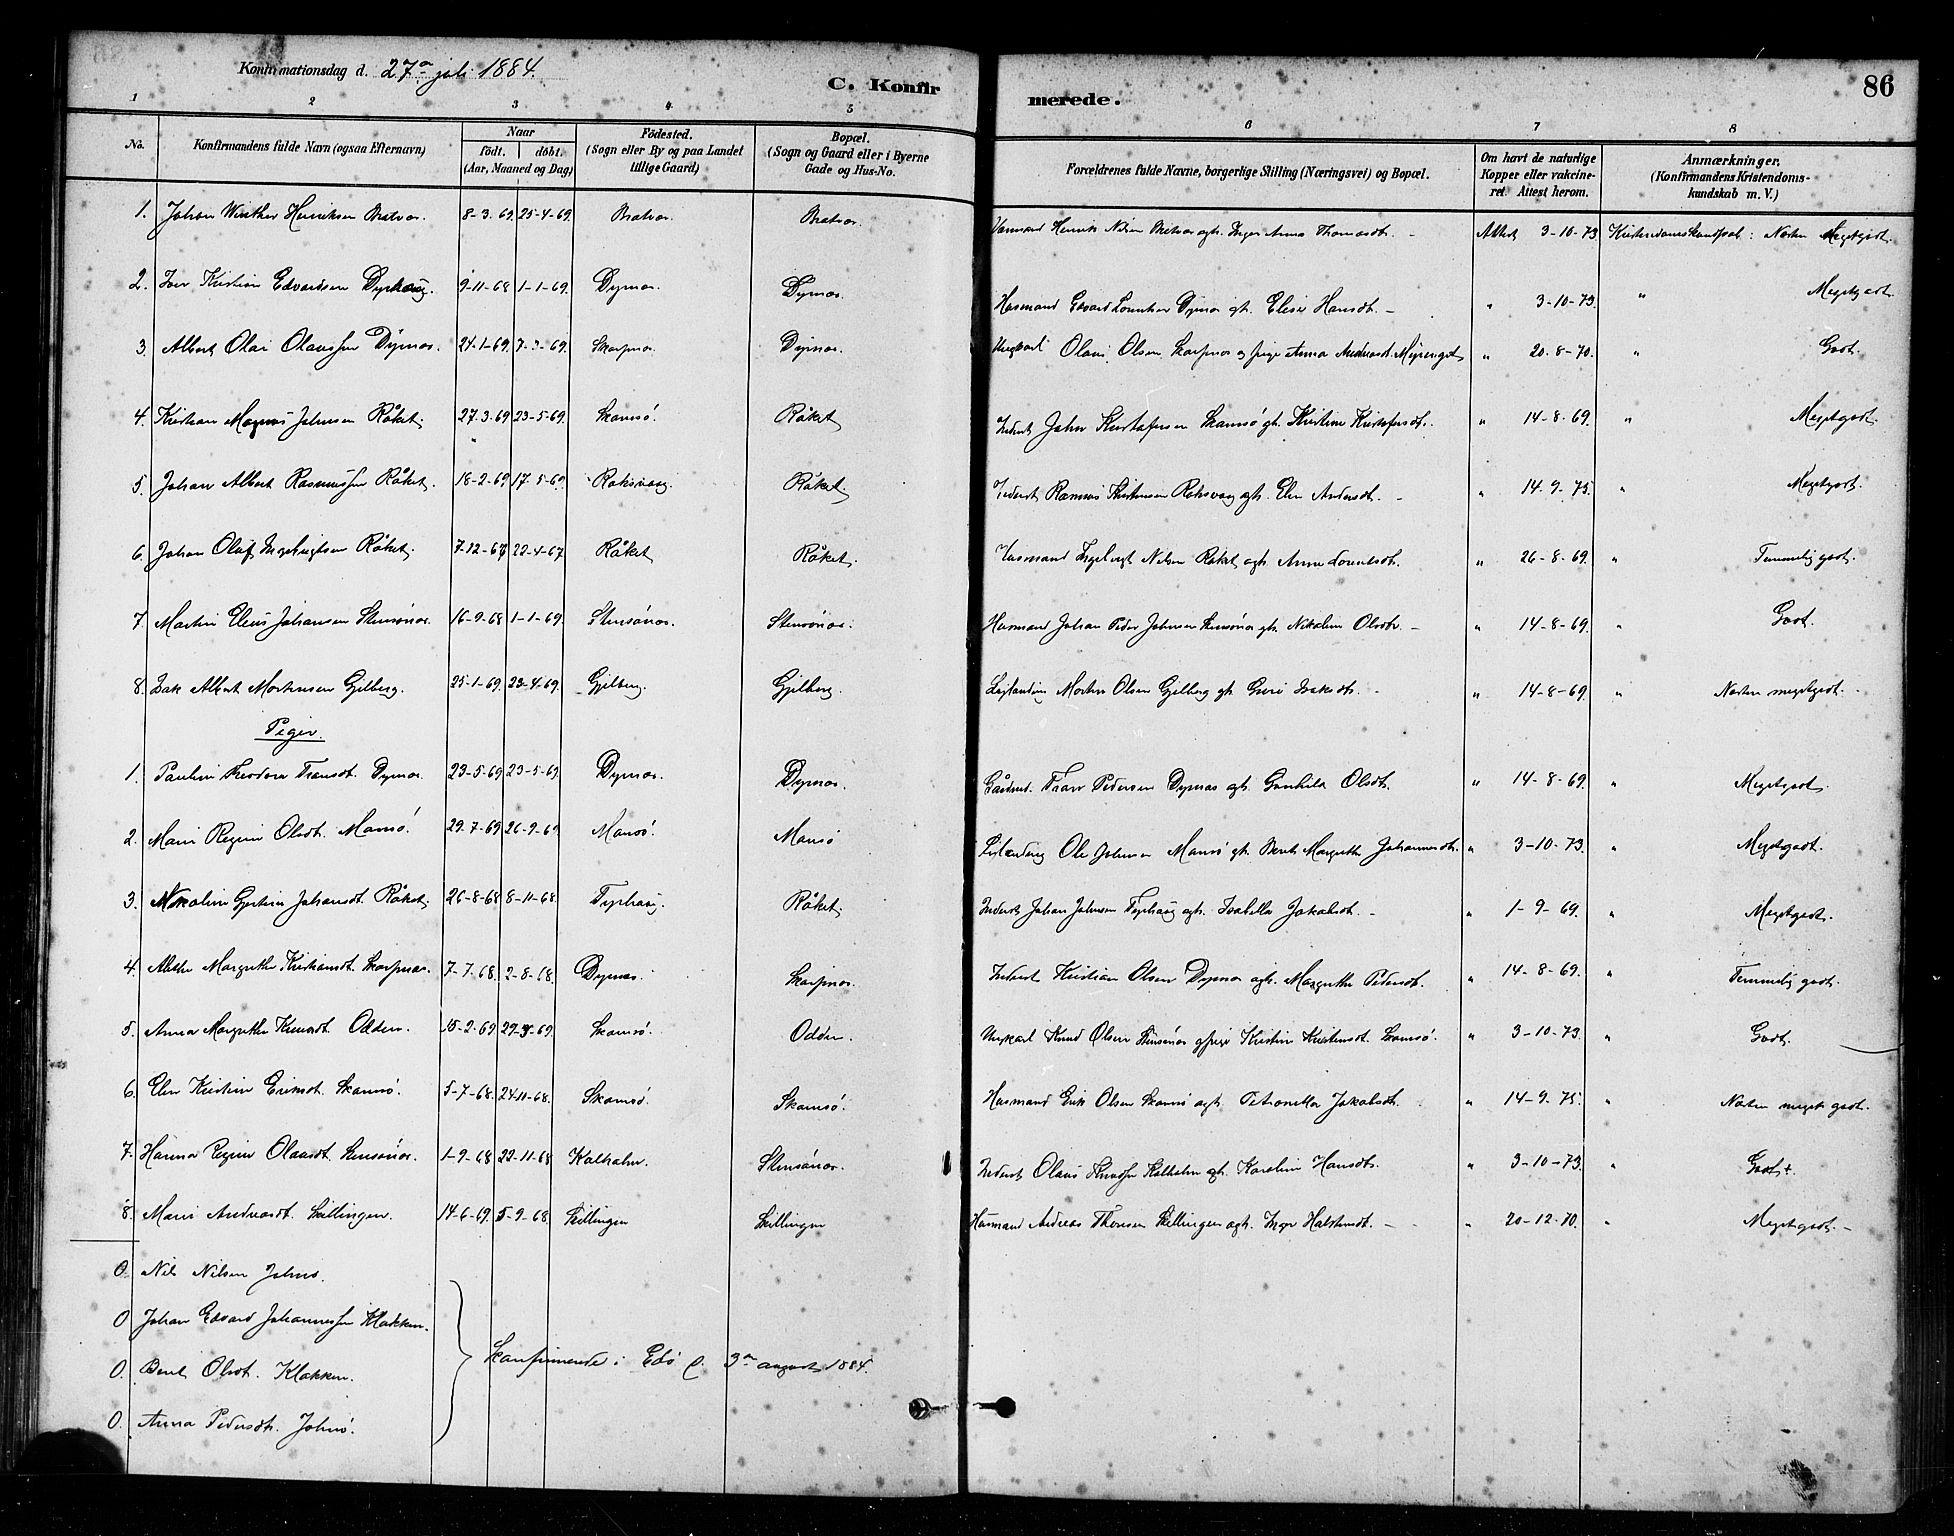 Konfirmationsdag d. 27de juli 1884.
C. Konfirmerede.
86
1 2 3 4 5 6 7 8
No.
Konfirmandens fulde Navn (ogsaa Efternavn)
Naar
födt. döbt.
(Aar, Maaned og Dag)
Födested.
(Sogn eller By og paa Landet
tillige Gaard)
Bopæl.
(Sogn og Gaard eller i Byerne
Gade og Hus-No.
Forældrenes fulde Navne, borgerlige Stilling (Næringsvei) og Bopæl.
Om havt de naturlige
Kopper eller vakcine-
ret. Attest herom.
Anmærkninger.
(Konfirmandens Kristendoms-
kundskab m. V.)
1. Johan Winther Henriksen Bratvær. 8-3-69. 25-4-69. Bratvær. Bratvær. Henrik Nilsen Bratvær og h. Inger Anna Thomasdt. - Attest 3-10-73 Kristendomskundskab: Næsten Megetgodt.
2. Iver Kristian Edvardsen Dyrhaug. 9-11-68 1-1-69. Dyrnæs. Dyrnæs. Husmand Edvard Lorentsen Dyrnæs og h. Elisie Hansdt. - " 3-10-73. " Megetgodt.
3. Albert Olai Olaussen Dyrnæs. 24-1-69. 7-3-69. Skarpnæs. Dyrnæs. Ungkarl Olaus Olsen Skarpnæs og pige Anna Andreasdt. " 20-8-70. " Godt.
4. Kristian Magnus Johnsen Råket. 27-3-69 23-5-69. Skamsö. Råket. Inderst John Kristofersen Skamsö og h. Kristine Kristofersdt. " 14-8-69. " Megetgodt.
5. Johan Albert Rasmussen Råket. 18-2-69 17-5-69. Roksvaag. Råket. Inderst Rasmus Kristensen Roksvaag og h. Elen Andersdt. - " 14-9-75. " Megetgodt.
6. Johan Oluf Ingebrigtsen Råket. 7-12-67 22-4-67 Råket Råket. Husmand Ingebrigt Nilsen Råket og h. Anne Lorentsdt. " 26-8-69. " Temmelig godt.
7. Martin Elius Johansen Stensönæs. 16-9-68 1-1-69. Stensönæs. Stensönæs. Husmand Johan Peder Johnsen Stensönæs og h. Nikoline Olsdt. - " 14-8-69. " Godt.
8. Isak Albert Mortensen Gjelberg. 25-1-69. 23-4-69. Gjelberg. Gjelberg. Leilænding Morten Olsen Gjelberg og h. Guri Isaksdt. - " 14-8-69. " Næsten megetgodt. -
Piger.
1. Pauline Theodora Dyrnæs. 23-5-69 23-5-69. Dyrnæs. Dyrnæs. Pedersen Dyrnæs og h. Gunhild Olsdt. " 14-8-69. " Megetgodt.
2. Marie Regine Olsdt. Mansö. 29-7-69 26-9-69 Mansö. Mansö Leilænding Ole Johnsen Mansö og h. Berit Margrethe Johannesdt. " 3-10-73. " Megetgodt.
3. Nikoline Gjertine Johansdt. Råket. 26-8-68 8-11-68. Typhaug. Råket. Inderst Johan Johnsen Typhaug og h. Isabella Jakobsdt. - " 1-9-69. " Megetgodt.
4. Alethe Margrethe Kristiansdt. Skarpnæs. 7-7-68. 2-8-68. Dyrnæs. Skarpnæs. Inderst Kristian Olsen Dyrnæs og h. Margrethe Pedersdt. " 14-8-69. " Temmelig godt.
5. Anna Margrethe Knudsdt. Odden. 15-2-69 29-3-69. Skamsö. Odden. Ungkarl Knud Olsen Stensönæs og pige Kristine Kristensdt. Skamsö. " 3-10-73. " Godt.
6. Elen Kristine Eriksdt. Skamsö. 5-7-68. 24-11-68. Skamsö. Skamsö. Husmand Erik Olsen Skamsö og h. Petronella Jakobsdt. " 14-9-75. " Næsten meget godt.
7. Hanna Regine Olausdt. Stensönæs. 1-9-68 22-11-68 Kalholm. Stensönæs. Inderst Olaus Knudsen Kalholm og h. Karoline Hansdt. " 3-10-73. " Godt+
8. Marie Andreasdt. Skillingen. 14-6-69. 5-9-68. Skillingen Skillingen Husmand Andreas Thorsen Skillingen og h. Inger Halstensdt. - " 20-12-70. " Megetgodt. -
0. Nils Nilsen Jolmö.
0 Johan Edvard Johannessen Klakken.
0. Berit Olsdt. Klakken.
0. Anna Pedersdt. Jolmö.
konfirmerede i Edö d. 3de august 1884.